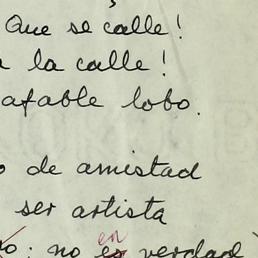 Que se calle!
a la calle!
afable lobo.
o de amistad
ser artista
en
o: no es verdad